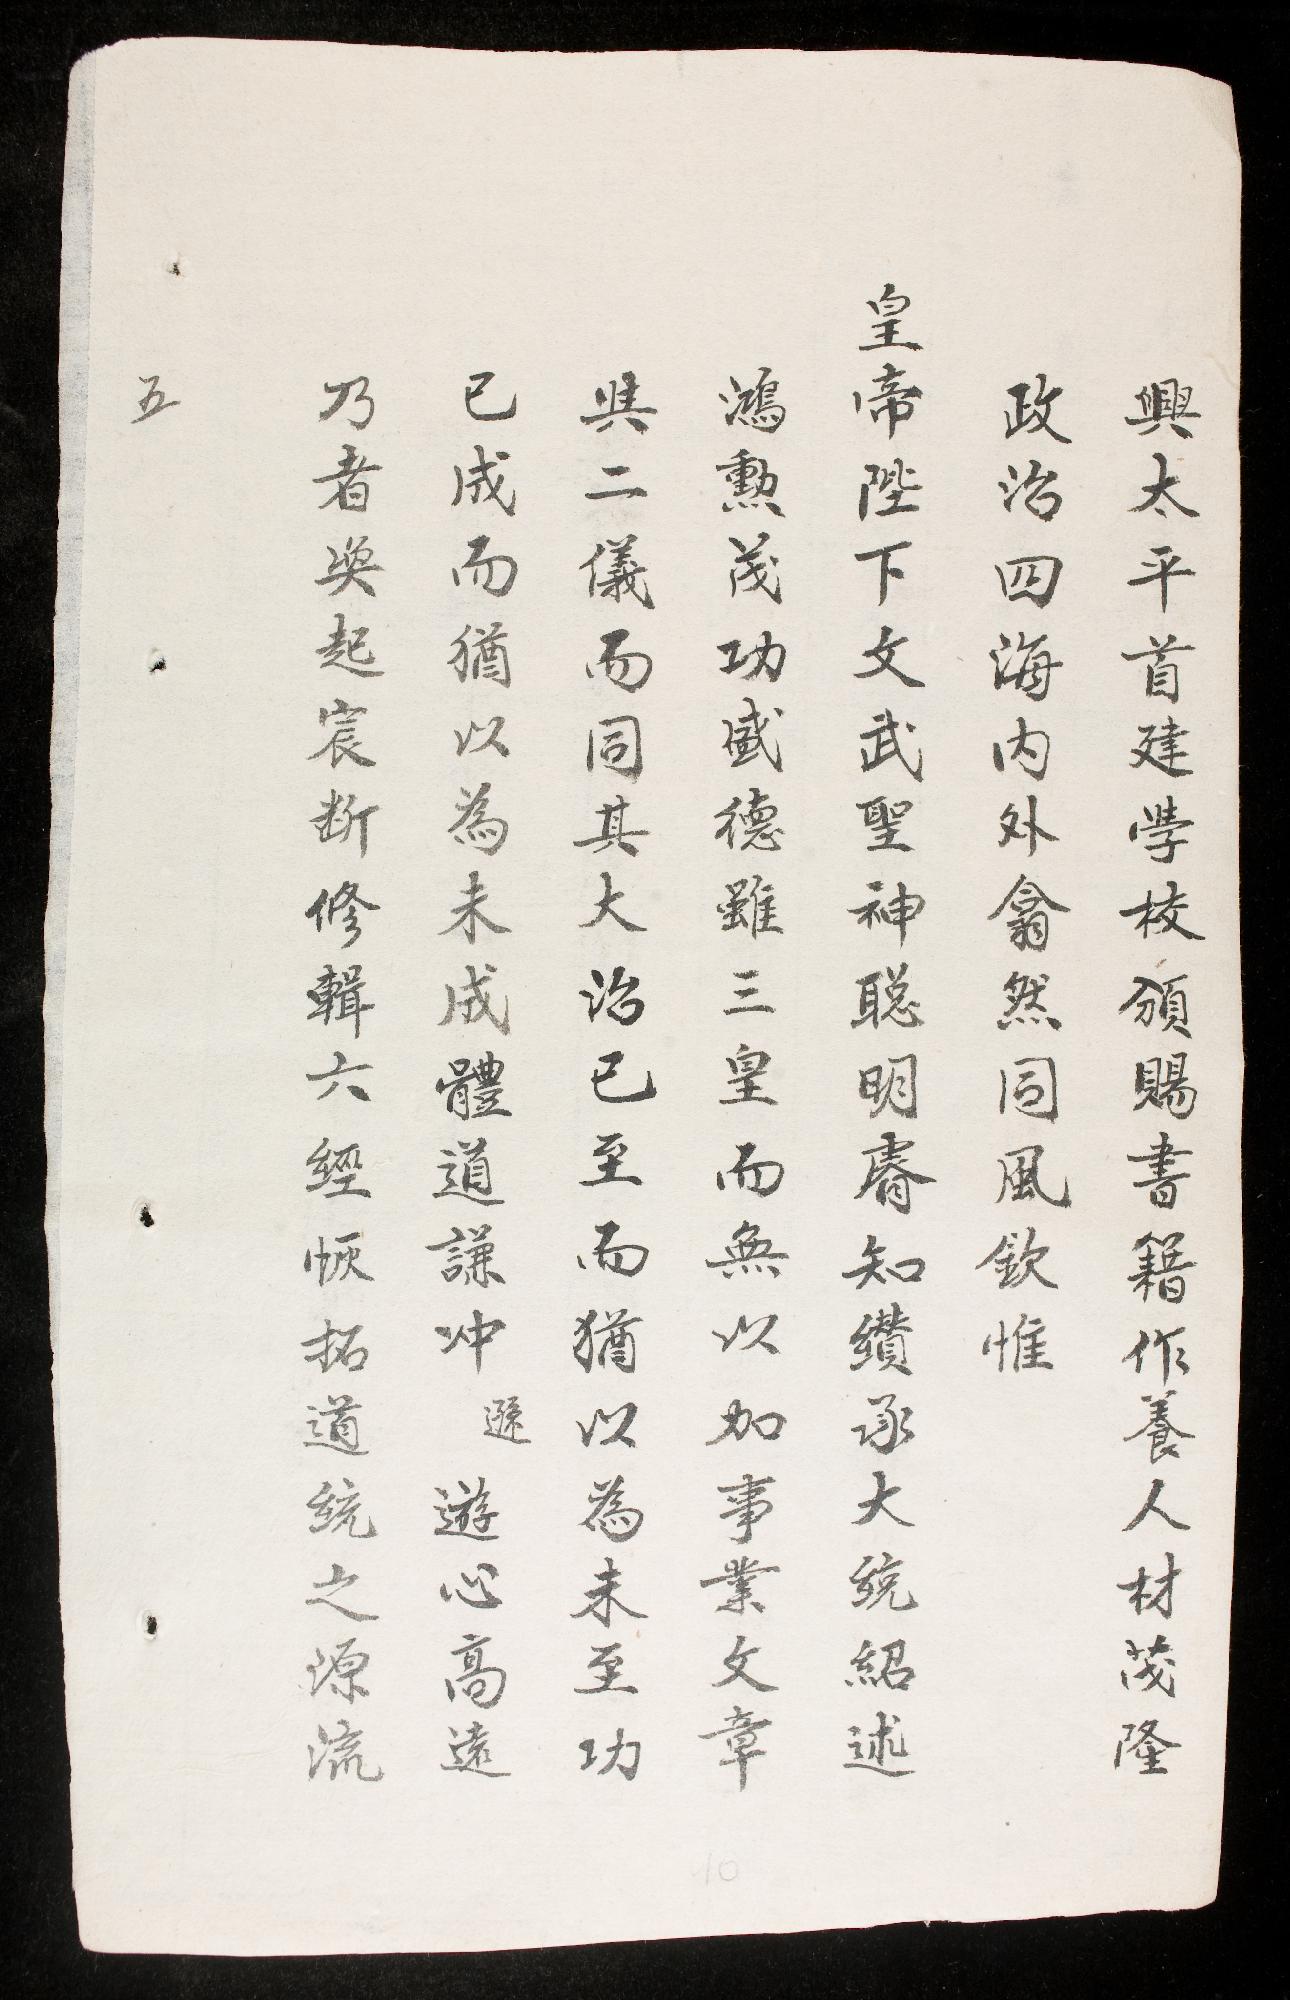 興太平首建學校頒賜書籍作養人材茂隆
政治四海内外翕然同風欽惟
皇帝陛下文武聖神聰明睿知纘承大統紹述
鴻勲茂功盛德雖三皇而無以加事業文章
與二儀而同其大治已至而猶以為未至功
已成而猶以為未成體道謙冲遜遊心高遠
乃者奐起宸斷修輯六經恢拓道統之源流
五
10